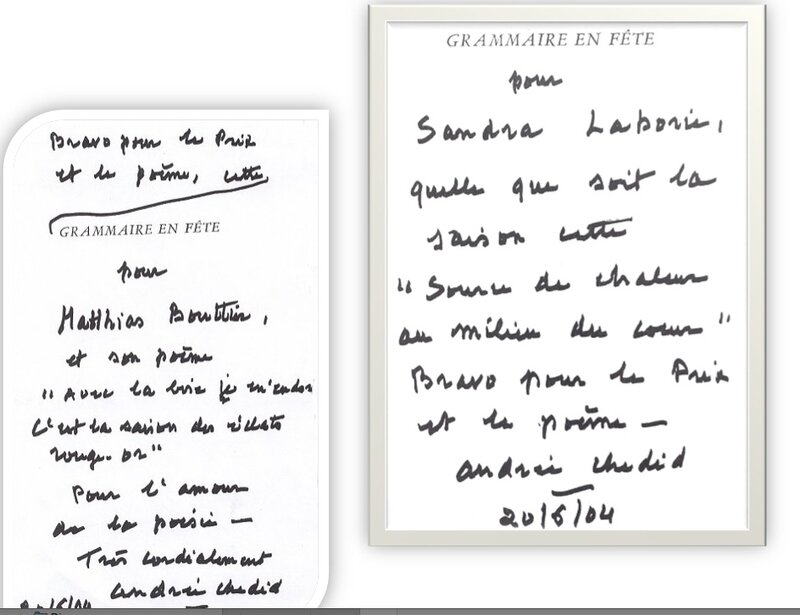 Bravo pour le Prix
et le poème, cette
GRAMMAIRE EN FÊTE
pour
Matthias Bouttier,
et son poème
"Avec la brise je m'endors
C'est la saison des éclats
rouge-or"
Pour l'amour
de la poésie —
Très cordialement
andrée chedid
GRAMMAIRE EN FÊTE
pour
Sandra Laborie,
quelle que soit la
saison cette
"Source de chaleur
au milieu du coeur"
Bravo pour le Prix
et le poème —
andrée chedid
20/5/04